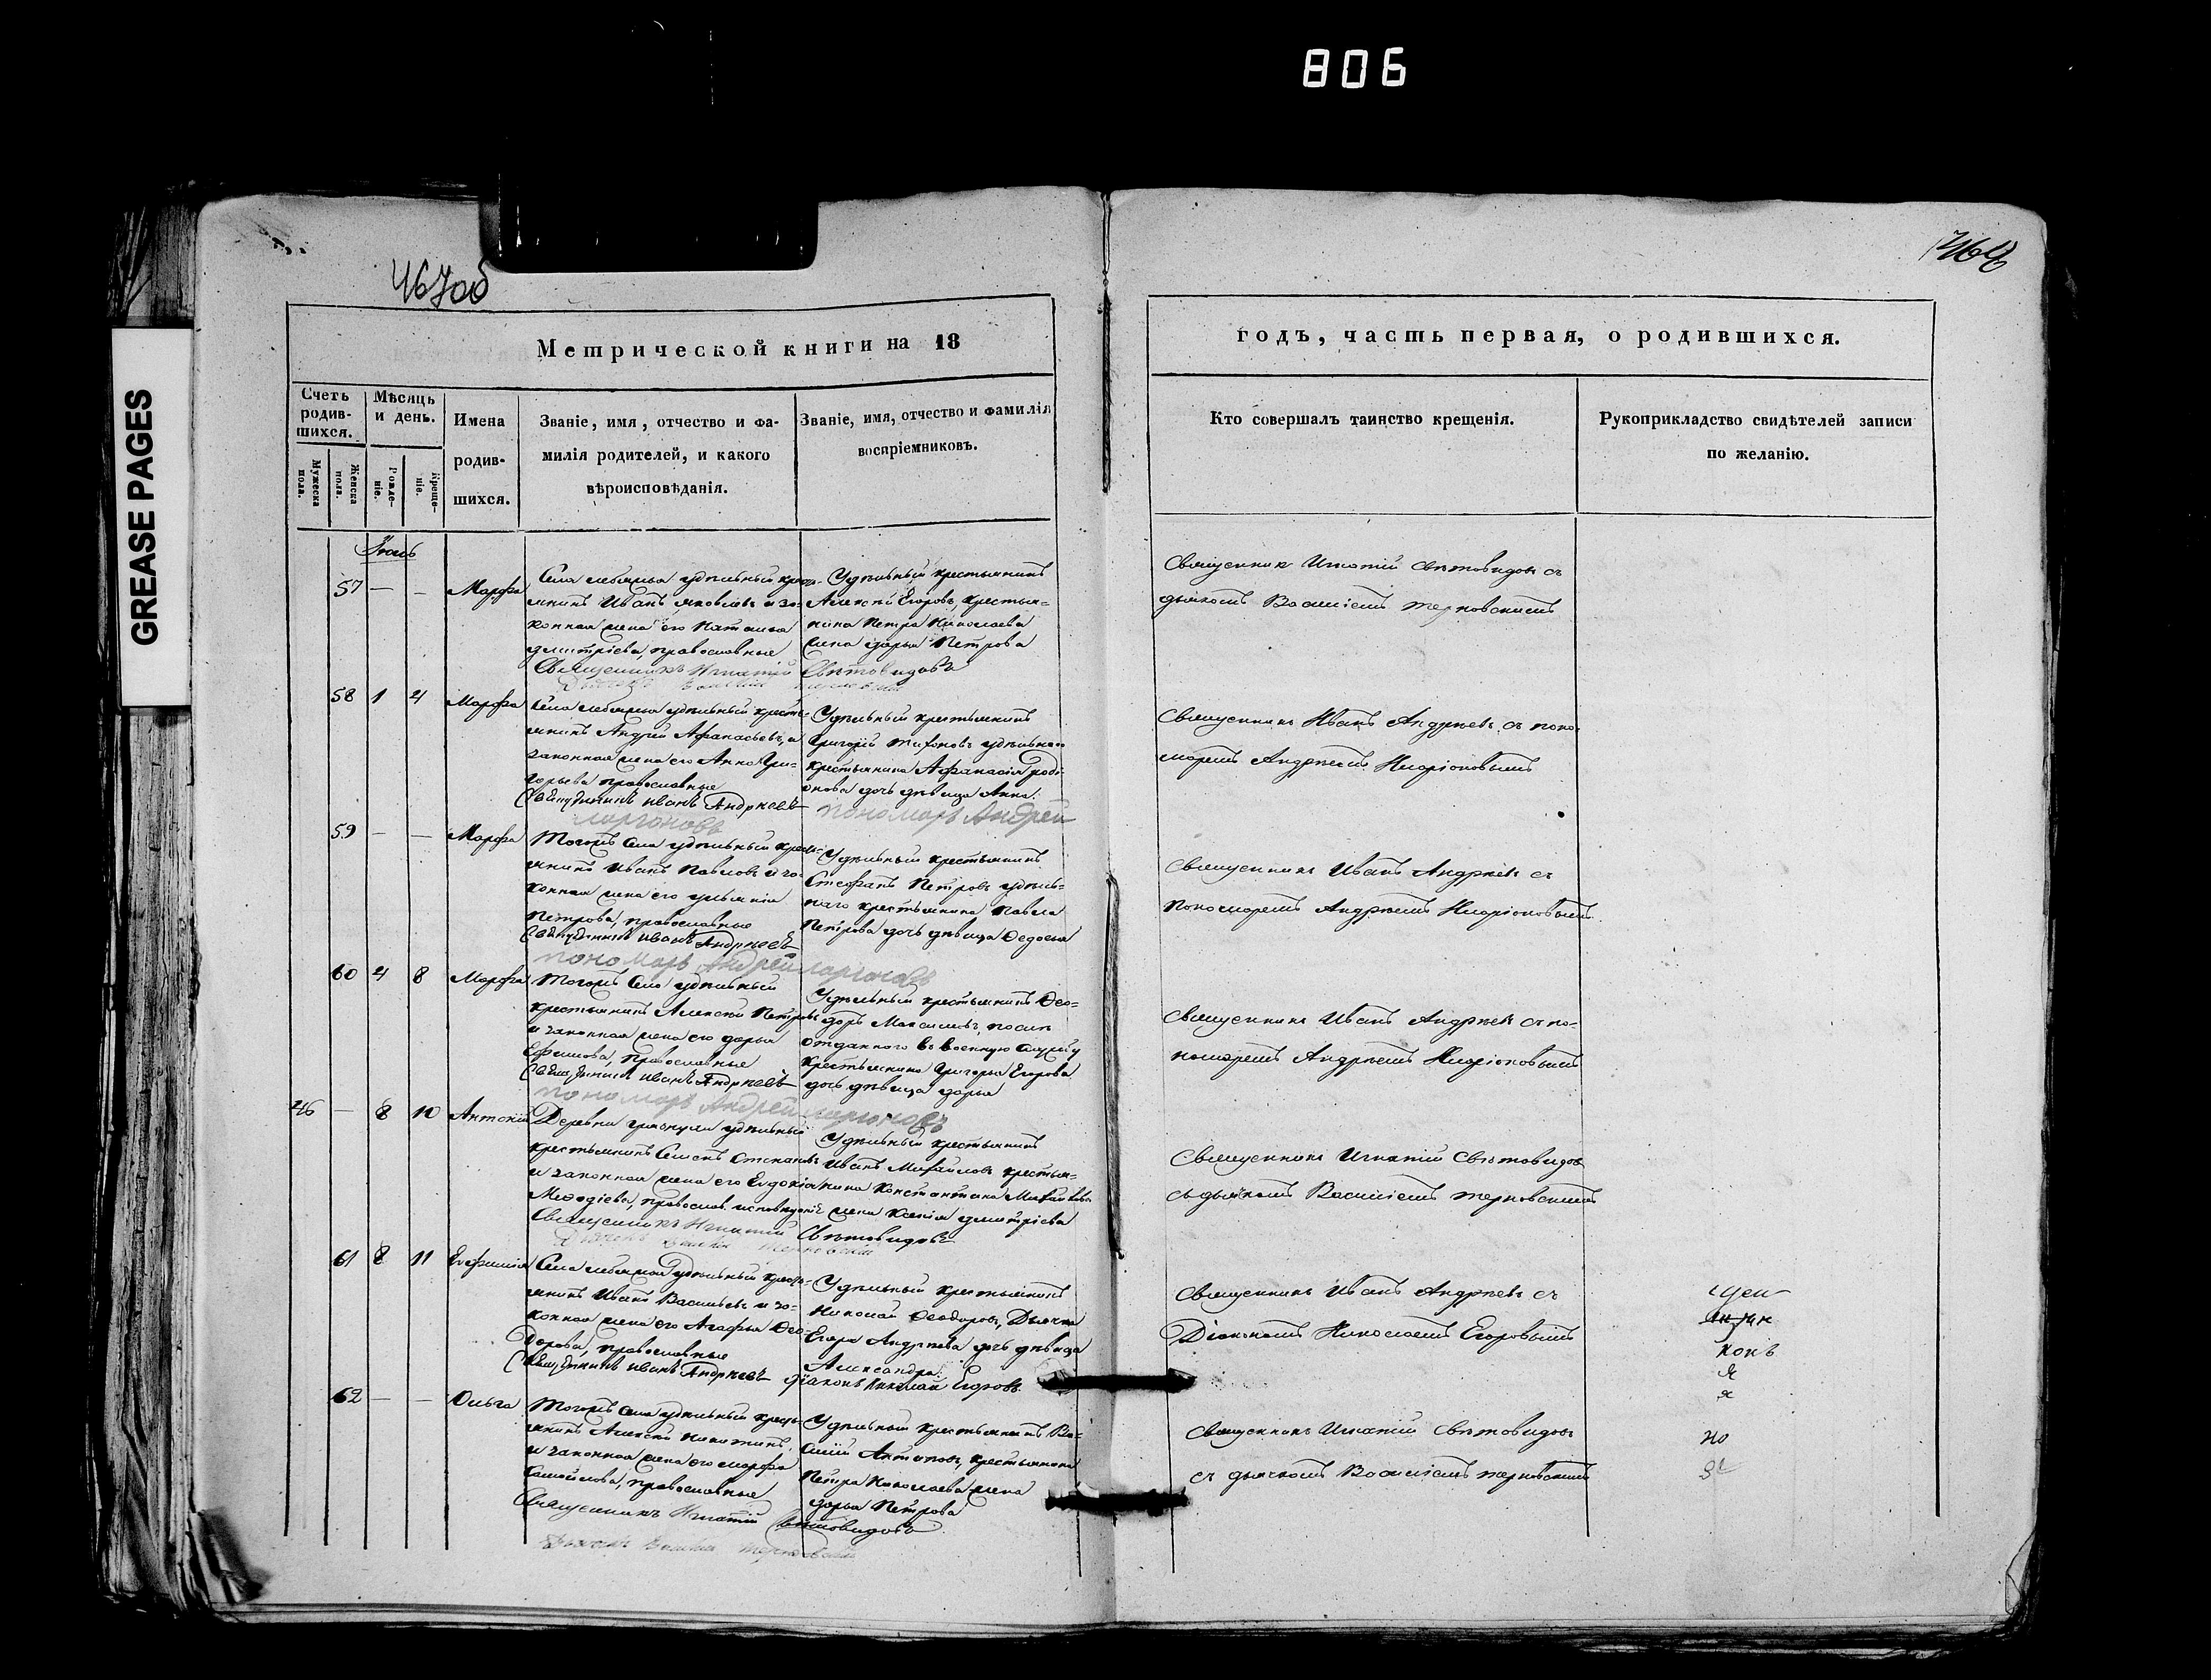 806
GREASE PAGES
467об
Метрической книги на 18
годъ, часть первая, о родившихся.
Счетъ родив-шихся.
Мѣсяцъ и день.
Имена родив-шихся.
Званіе, имя, отчество и фа-
милія родителей, и какого
вѣроисповѣданія.
Званіе, имя, отчество и фамилія
воспріемниковъ.
Мужеска пола.
Женска пола.
Рожде-ніе.
Креще-ніе.
Кто совершалъ таинство крещенія.
Рукоприкладство свидѣтелей записи
по желанію.
57 — — Марфа
удѣльный
Иванъ Яковлевъ и за-
конная жена его Наталья
Дмитріева, православные
Священникъ Игнатій Свѣтовидовъ
Удѣльный крестьянинъ
Алексѣй Егоровъ, крестья-
нина Петра Николаева
жена Дарья Петрова
Священник Игнатій Свѣтовидовъ съ
дьячкомъ Василіемъ Терновскимъ
58 1 4 Марфа
удѣльный кресть-
янинъ Андрей Афанасьевъ, и
законная жена его Анна Гри-
горьева православные
Священникъ Иванъ Андреевъ
Пономарь Андрей
Ларіоновъ
Удѣльный крестьянинъ
Григорій Тихоновъ удѣльнаго
крестьянина Афанасія Роді-
онова дочь дѣвица Анна.
Священникъ Иванъ Андреевъ съ поно-
маремъ Андреемъ Иларіоновымъ
59 — — Марфа
Тогожъ села удѣльный кресть-
янинъ Иванъ Павловъ и за-
конная жена его
Петрова, православные
Священникъ Иванъ Андреевъ
Пономарь Андрей Ларіоновъ
Удѣльный крестьянинъ
Стефанъ Петровъ удѣль-
наго крестьянина Павла
Петрова дочь дѣвица Федосья
Священникъ Иванъ Андреевъ съ
пономаремъ Андреемъ Иларіоновымъ
60 4 8 Марфа
Тогожъ села удѣльный
крестьянинъ Алексѣй Петровъ
и законная жена его Дарья
Ефимова, православные
Священникъ Иванъ Андреевъ
Пономарь Андрей Ларіоновъ
Удѣльный крестьянинъ Ѳео-
доръ Максимовъ,
отданного въ военную службу
крестьянина Григорья Егорова
дочь дѣвица Дарья
Священникъ Иванъ Андреевъ съ по-
номаремъ Андреемъ Иларіоновымъ
46 — 8 10 Антоній
Деревни удѣльный
крестьянинъ Семенъ Степановъ
и законная жена его Евдокія
Меѳодіева, правосл. исповѣданія
Священникъ Игнатій Свѣтовидовъ
Удѣльный крестьянинъ
Иванъ Михайловъ крестья-
нина Константина Михайлова
жена Ксенія Дмитріева
Священникъ Игнатій Свѣтовидовъ
съ дьячкомъ Василіемъ Терновскимъ
61 8 11 Евфимія
удѣльный кресть-
янинъ Иванъ Васильевъ и за-
конная жена его Агафья Ѳео-
дорова, православные
Священникъ Иванъ Андреевъ
Діаконъ Николай Егоровъ
Удѣльный крестьянинъ
Николай Ѳеодоровъ, Дьячка
Егора Андреева дочь дѣвица
Александра.
Священникъ Иванъ Андреевъ съ
Діакономъ Николаемъ Егоровымъ
62 — — Ольга
Тогожъ села удѣльный кресть-
янинъ Алексѣй Никитинъ
и законная жена его Марфа
Самойлова, православные
Священникъ Игнатій Свѣтовидовъ
Дьячекъ Василій Терновскій
Удѣльный крестьянинъ Ва-
силій Антиповъ, крестьянина
Петра Николаева жена
Дарья Петрова
Священникъ Игнатій Свѣтовидовъ
съ дьячкомъ Василіемъ Терновскимъ